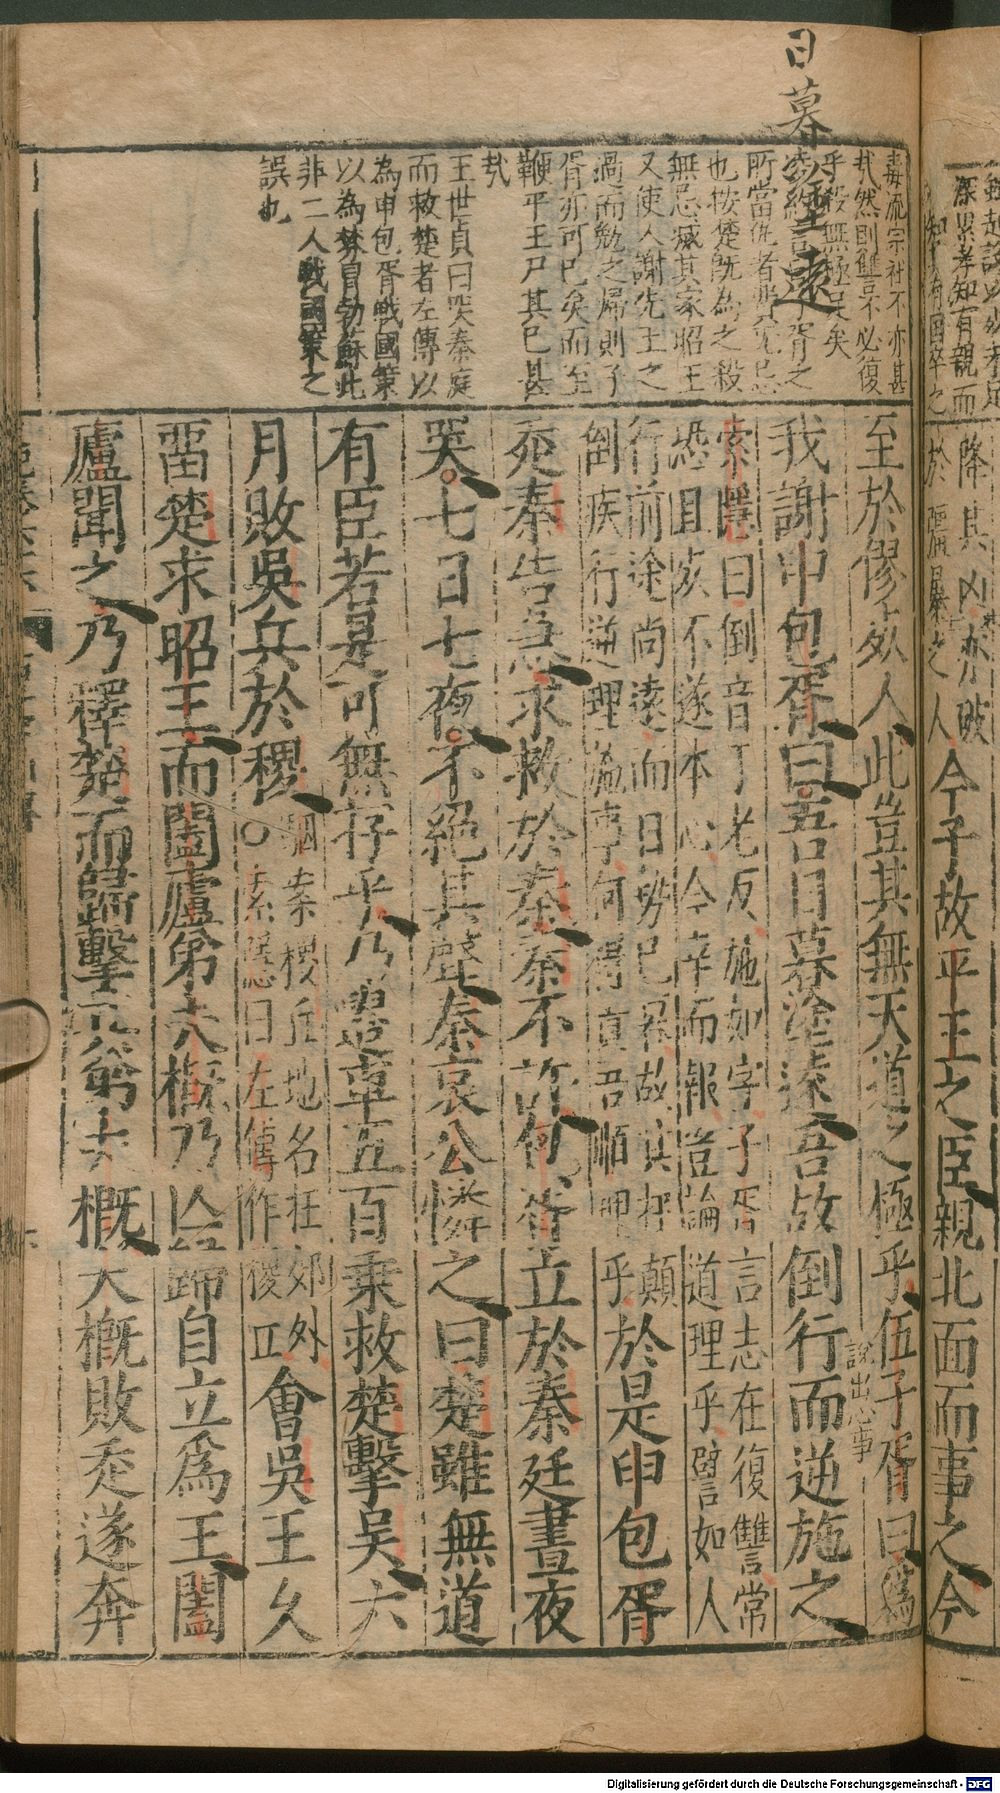 日暮
塗遠
毒流宗社不亦甚
哉然則讐不必復
乎殺無極足矣
所當仇者
也按楚既為之殺
無忌滅其家昭王
又使人謝先王之
過而勉之歸則子
胥亦可已矣而至
鞭平王尸其已甚
哉
王世貞曰哭秦庭
而救楚者左傳以
為申包胥戰國策
以為棼冒勃蘇此
非二人戰國策之
誤也
至於僇死人此豈其無天道之極乎伍子胥曰為
說出心事
我謝申包胥曰吾日暮塗遠吾故倒行而逆施之
索隱曰倒音丁老反施如字子胥言志在復讐常
恐且死不遂本心今幸而報豈論道理乎譬如人
行前途尚遠而日勢已暮故其在顛
倒疾行逆理施事何得責吾順理乎
於是申包胥
走秦告急求救於秦秦不許包胥立於秦廷晝夜
哭七日七夜不絕其聲秦哀公憐之曰楚雖無道
有臣若是可無存乎乃遣車五百乘救楚擊吳六
月敗吳兵於稷
駰案稷丘地名在郊外
○索隱曰左傳作稷丘
會吳王久
畱楚求昭王而闔廬弟夫概乃亡歸自立爲王闔
廬聞之乃釋楚而歸擊其弟夫概夫概敗走遂奔
深累孝知有親而
之
降其凶亦破
於
暴之人今子故平王之臣親北面而事之今
Digitalisierung gefördert durch die Deutsche Forschungsgemeinschaft - DFG